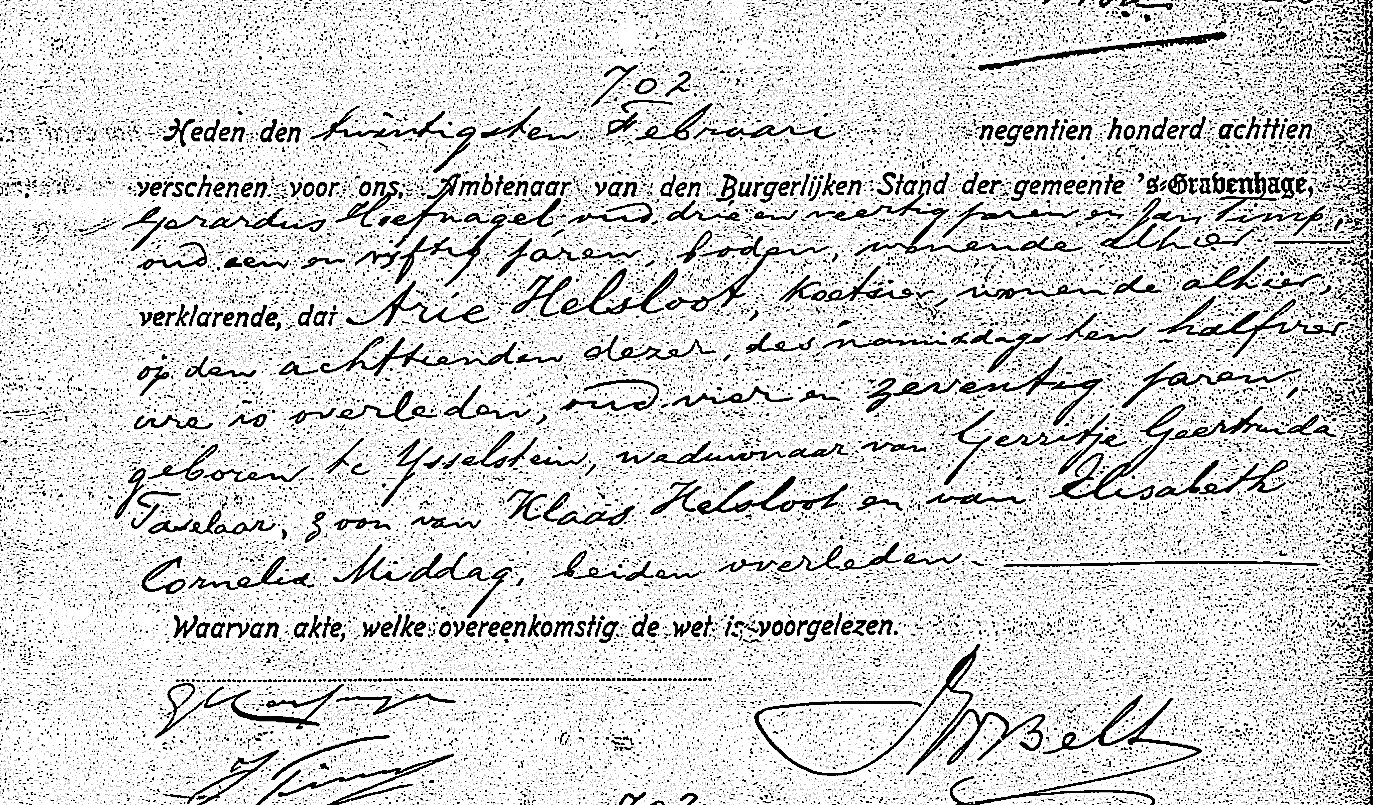 702
Heden den twintigsten Februari negentien honderd achttien
verschenen voor ons, Ambtenaar van den Burgerlijken Stand der gemeente 's-Gravenhage,
Gerardus Hoefnagel, oud drie en veertig jaren en Jan Timp,
oud een en vijftig jaren, boden, wonende alhier
verklarende, dat Arie Helsloot, koetsier, wonende alhier,
op den achttienden dezer, des namiddags ten halfvier
ure is overleden, oud vier en zeventig jaren,
geboren te Ysselstein, weduwnaar van Gerritje Geertruida
Taselaar, zoon van Klaas Helsloot en van Elisabeth
Cornelia Middag, beiden overleden.
Waarvan akte, welke overeenkomstig de wet is voorgelezen.
G Hoefnagel
J Timp
Belt
702